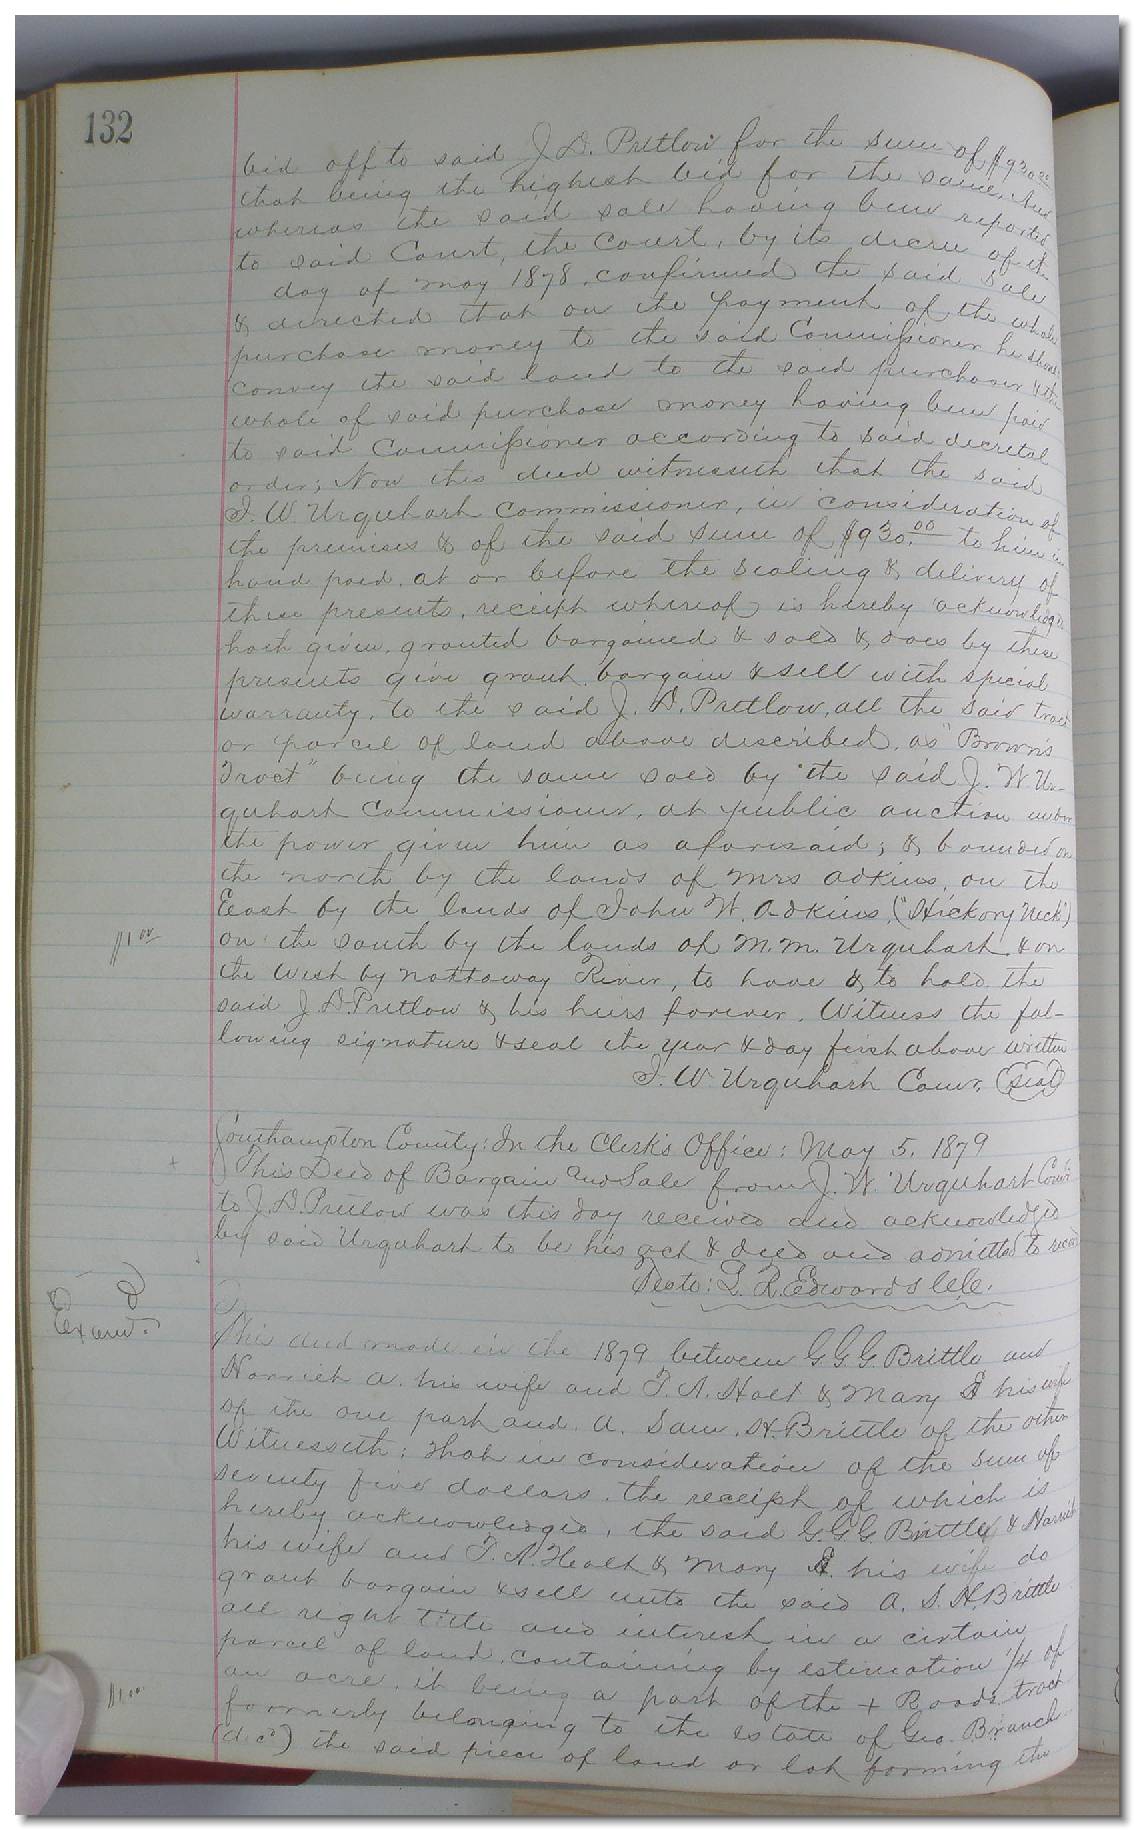 132
bid off to said J. D. Pretlow for the sum of $930.00
that being the highest bid for the same, And
whereas the said sale having been reported
to said Court, the Court, by its decree of the
day of May 1878, confirmed the said Sale
& directed that on the payment of the whole
purchase money to the said Commissioner he should
convey the said land to the said purchaser & the
whole of said purchase money having been paid
to said Commissioner according to said decretal
order; Now this deed witnesseth that the said
J. W. Urquhart Commissioner, in consideration of
the premises & of the said sum of $930.00 to him in
hand paid, at or before the sealing & delivery of
these presents, receipt whereof is hereby acknowledged
hath given, granted bargained & sold & does by these
presents give grant, bargain & sell with special
warranty, to the said J. D. Pretlow, all the said tract
or parcel of land above described, as "Brown's
Tract" being the same sold by the said J. W. Ur-
quhart Commissioner, at public auction under
the power given him as aforesaid; & bounded on
the north by the lands of Mrs Adkins, on the
East by the lands of John W. Adkins, ("Hickory Neck")
on the south by the lands of M. M. Urquhart & on
$1.00
the West by Nottoway River, to have & to hold the
said J. D. Pretlow & his heirs forever. Witness the fol-
lowing signature & seal the year & day first above written
J. W. Urquhart Comr. (Seal)
Southampton County: In the Clerk's Office: May 5, 1879
This Deed of Bargain and Sale from J. W. Urquhart Comr
to J. D. Pretlow was this day received and acknowledged
by said Urquhart to be his act & deed and admitted to record
Teste: L. R. Edwards CC.
Examd.
This deed made in the 1879 between G. G. G. Brittle and
Harriet A. his wife and T. A. Holt & Mary E his wife
of the one part and A. Sam. H. Brittle of the other
Witnesseth; That in consideration of the sum of
seventy five dollars, the receipt of which is
hereby acknowledged, the said G. G. G. Brittle & Harriet
his wife and T. A. Heolt & Mary E. his wife do
grant bargain & sell unto the said A. S. H. Brittle
all right title and interest in a certain
parcel of land, containing by estimation 1/4 of
an acre, it being a part of the + Roads tract
$1.00
formerly belonging to the estate of Geo. Branch
(decd) the said piece of land or lot forming the